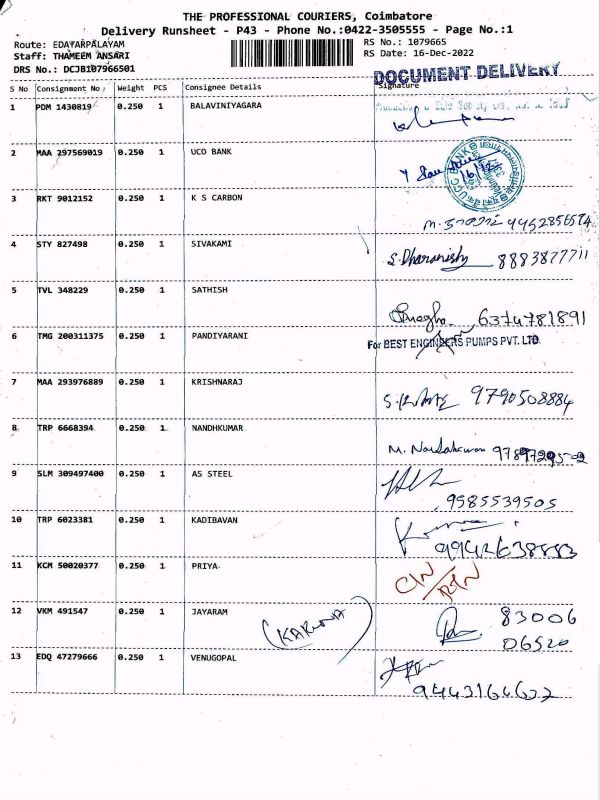 THE PROFESSIONAL COURIERS, Coimbatore
Delivery Runsheet - P43 - Phone No.:0422-3505555 - Page No.:1
Route: EDAYARPALAYAM
RS No.: 1079665
Staff: THAMEEM ANSARI
RS Date: 16-Dec-2022
DRS No.: DCJB107966501
DOCUMENT DELIVERY
S No Consignment No Weight PCS Consignee Details Signature
1 PDM 1430819 0.250 1 BALAVINIYAGARA
2 MAA 297569019 0.250 1 UCO BANK
3 RKT 9012152 0.250 1 K S CARBON
4 STY 827498 0.250 1 SIVAKAMI S.Dharanishy 8883877711
5 TVL 348229 0.250 1 SATHISH 6374781891
6 TMG 200311375 0.250 1 PANDIYARANI For BEST ENGINEERS PUMPS PVT. LTD.
7 MAA 293976889 0.250 1 KRISHNARAJ 9790508884
8 TRP 6668394 0.250 1 NANDHKUMAR M. Nandakumar
9 SLM 309497400 0.250 1 AS STEEL 9585539505
10 TRP 6023381 0.250 1 KADIBAVAN 9942638883
11 KCM 50020377 0.250 1 PRIYA
12 VKM 491547 0.250 1 JAYARAM (KARUNA) 83006
06520
13 EDQ 47279666 0.250 1 VENUGOPAL 9443164622